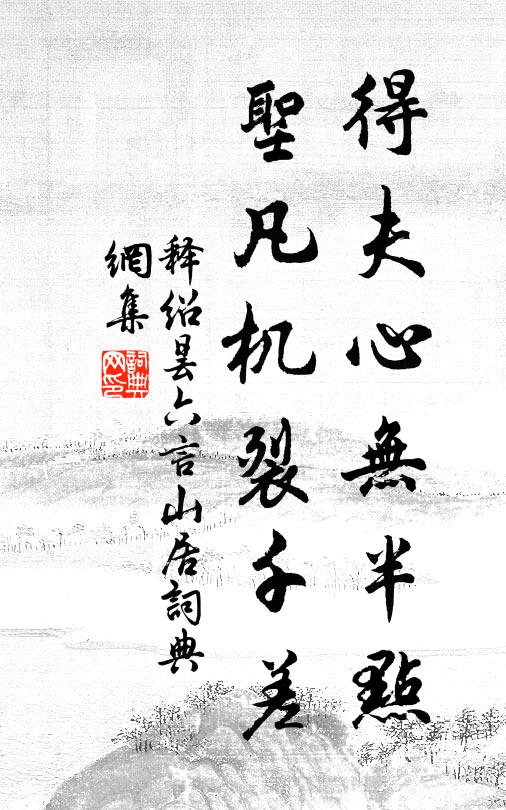 得夫心無半點
聖凡机裂千差
释绍昙六言山居詞典
網集
詞典
网印